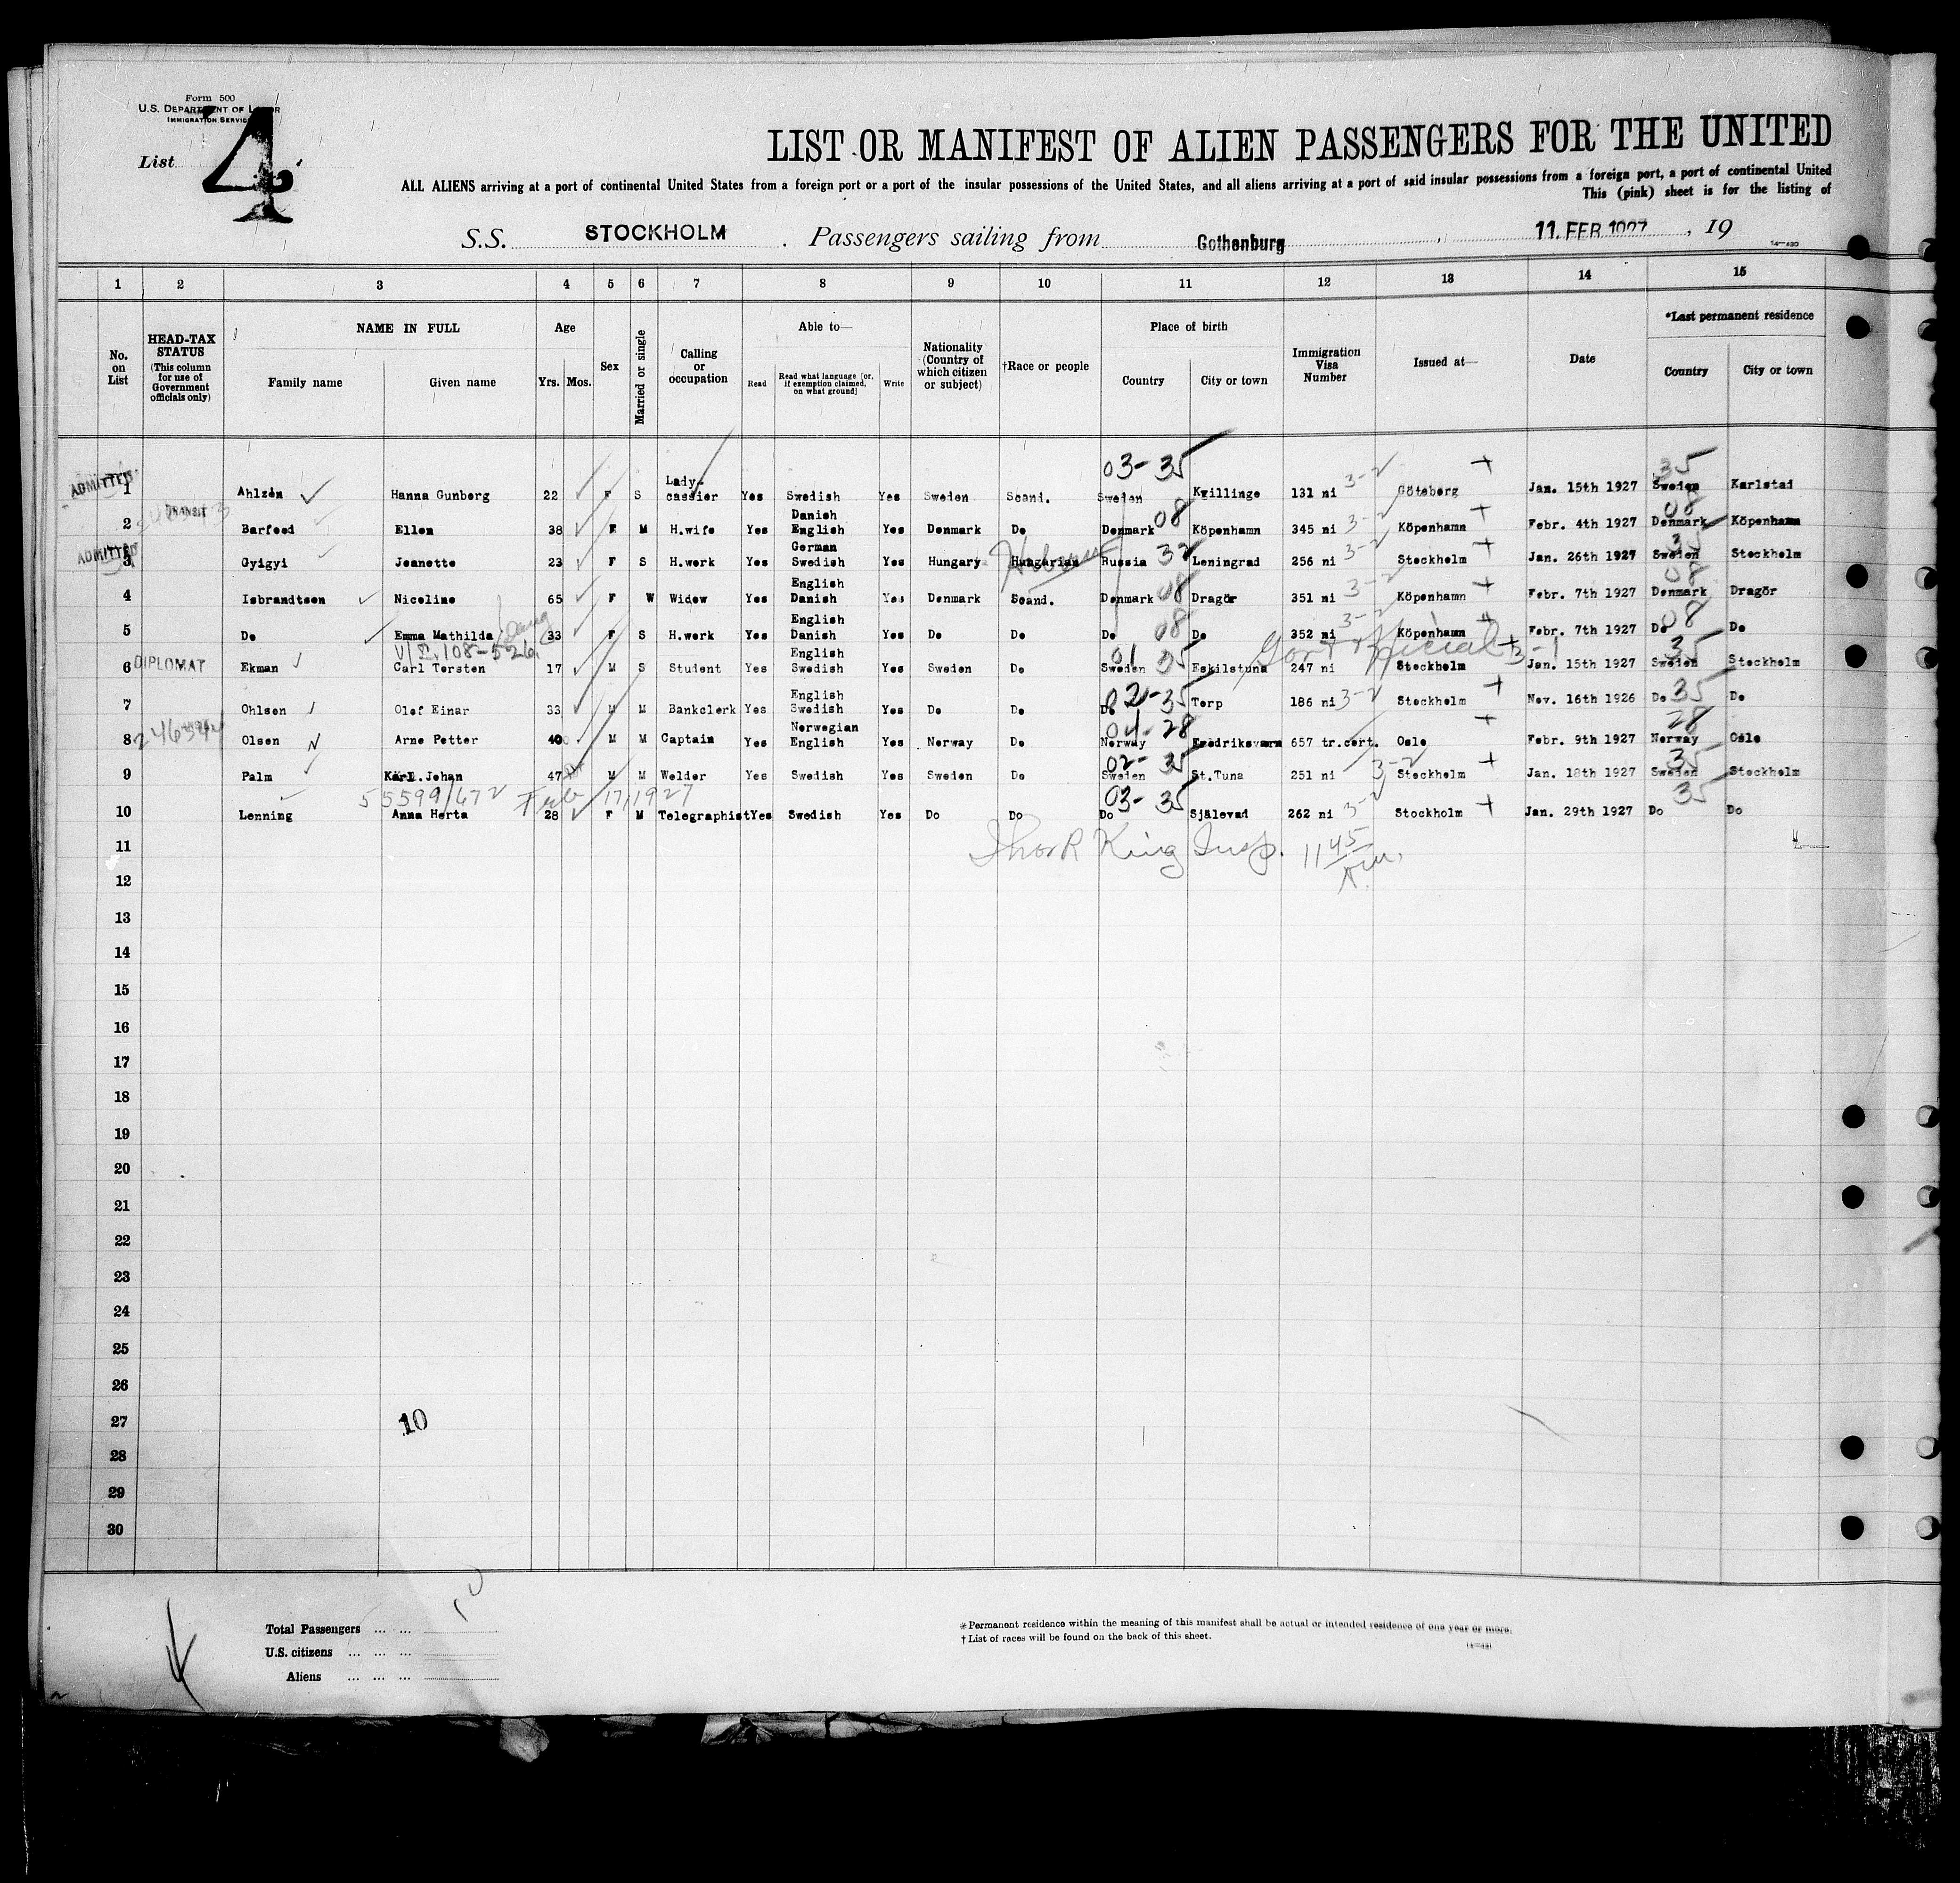 Form 500
U.S. DEPARTMENT OF LABOR
IMMIGRATION SERVICE
List 4
LIST OR MANIFEST OF ALIEN PASSENGERS FOR THE UNITED
ALL ALIENS arriving at a port of continental United States from a foreign port or a port of the insular possessions of the United States, and all aliens arriving at a port of said insular possessions from a foreign port, a port of continental United
This (pink) sheet is for the listing of
S.S. STOCKHOLM . Passengers sailing from Gothenburg , 11 FEB 1927 , 19
14—430
1 2 3 4 5 6 7 8 9 10 11 12 13 14 15
No. on List
HEAD-TAX STATUS (This column for use of Government officials only)
NAME IN FULL Family name Given name
Age Yrs. Mos.
Sex
Married or single
Calling or occupation
Able to— Read Read what language [or, if exemption claimed, on what ground] Write
Nationality (Country of which citizen or subject)
†Race or people
Place of birth Country City or town
Immigration Visa Number
Issued at—
Date
*Last permanent residence Country City or town
03-35 35
ADMITTED 1 Ahlzén Hanna Gunborg 22 F S Lady-cassier Yes Swedish Yes Sweden Scand. Sweden Kvillinge 131 ni 3-2 Göteborg Jan. 15th 1927 Sweden Karlstad
TRANSIT 2 Barfoed Ellen 38 F M H.wife Yes Danish English Yes Denmark Do Denmark 08 Köpenhamn 345 ni 3-2 Köpenhamn Febr. 4th 1927 Denmark 08 Köpenhamn
ADMITTED 3 Gyigyi Jeanette 23 F S H.work Yes German Swedish Yes Hungary Hungarian Hebrew Russia 32 Leningrad 256 ni 3-2 Stockholm Jan. 26th 1927 Sweden Stockholm
4 Isbrandtsen Nicoline 65 F W Widow Yes English Danish Yes Denmark Scand. Denmark 08 Dragör 351 ni 3-2 Köpenhamn Febr. 7th 1927 Denmark 08 Dragör
5 Do Emma Mathilda 33 F S H.work Yes English Danish Yes Do Do Do 08 Do 352 ni 3-2 Köpenhamn Febr. 7th 1927 Do 08 Do
108-526 Gov't official 3-1
DIPLOMAT 6 Ekman Carl Torsten 17 M S Student Yes English Swedish Yes Sweden Do Sweden 01 35 Eskilstuna 247 ni Stockholm Jan. 15th 1927 Sweden 35 Stockholm
7 Ohlson Olof Einar 33 M M Bankclerk Yes English Swedish Yes Do Do Do 02-35 Torp 186 ni 3-2 Stockholm Nov. 16th 1926 Do 35 Do
8 Olsen Arne Petter 40 M M Captain Yes Norwegian English Yes Norway Do Norway 04-28 Fredriksværn 657 tr.cert. Oslo Febr. 9th 1927 Norway 28 Oslo
9 Palm Karl Johan 47 M M Welder Yes Swedish Yes Sweden Do Sweden 02-35 St.Tuna 251 ni 3-2 Stockholm Jan. 18th 1927 Sweden 35 Stockholm
55599/672 Feb 17, 1927
10 Lenning Anna Herta 28 F M Telegraphist Yes Swedish Yes Do Do Do 03-35 Själevad 262 ni 3-2 Stockholm Jan. 29th 1927 Do 35 Do
11 King Insp. 11 45 A.M.
12
13
14
15
16
17
18
19
20
21
22
23
24
25
26
27 10
28
29
30
10
Total Passengers ... ...
U.S. citizens ... ... ...
Aliens ... ... ...
* Permanent residence within the meaning of this manifest shall be actual or intended residence of one year or more.
† List of races will be found on the back of this sheet.